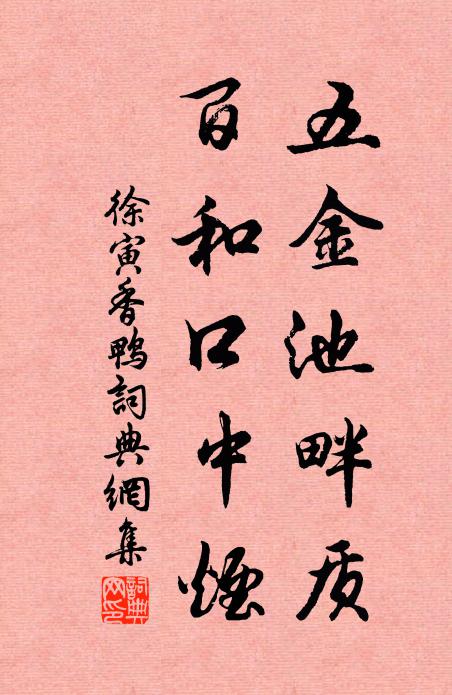 五金池畔质
百和口中煙
徐寅香鴨詞典網集
詞典网印